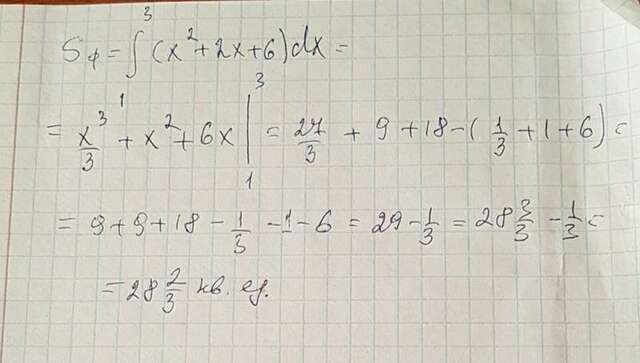 Sф = ∫₁³ (x² + 2x + 6)dx =
= x³/3 + x² + 6x |₁³ = 27/3 + 9 + 18 - (1/3 + 1 + 6) =
= 9 + 9 + 18 - 1/3 - 1 - 6 = 29 - 1/3 = 28 3/3 - 1/3 =
= 28 2/3 кв. ед.